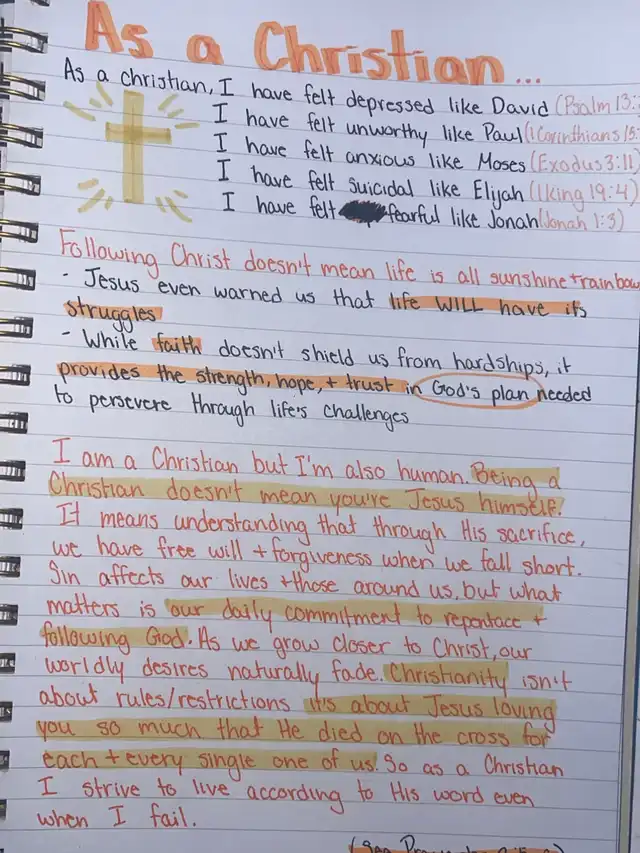 As a Christian...
As a christian, I have felt depressed like David (Psalm 13:
I have felt unworthy like Paul (1 Corinthians 15:
I have felt anxious like Moses (Exodus 3:11)
I have felt suicidal like Elijah (1 King 19:4)
I have felt fearful like Jonah (Jonah 1:3)
Following Christ doesn't mean life is all sunshine + rainbow
- Jesus even warned us that life WILL have its
struggles
- While faith doesn't shield us from hardships, it
provides the strength, hope, + trust in God's plan needed
to persevere through life's challenges
I am a Christian but I'm also human. Being a
Christian doesn't mean you're Jesus himself.
It means understanding that through His sacrifice,
we have free will + forgiveness when we fall short.
Sin affects our lives + those around us, but what
matters is our daily commitment to repentace +
following God. As we grow closer to Christ, our
worldly desires naturally fade. Christianity isn't
about rules/restrictions it's about Jesus loving
you so much that He died on the cross for
each + every single one of us. So as a Christian
I strive to live according to His word even
when I fail.